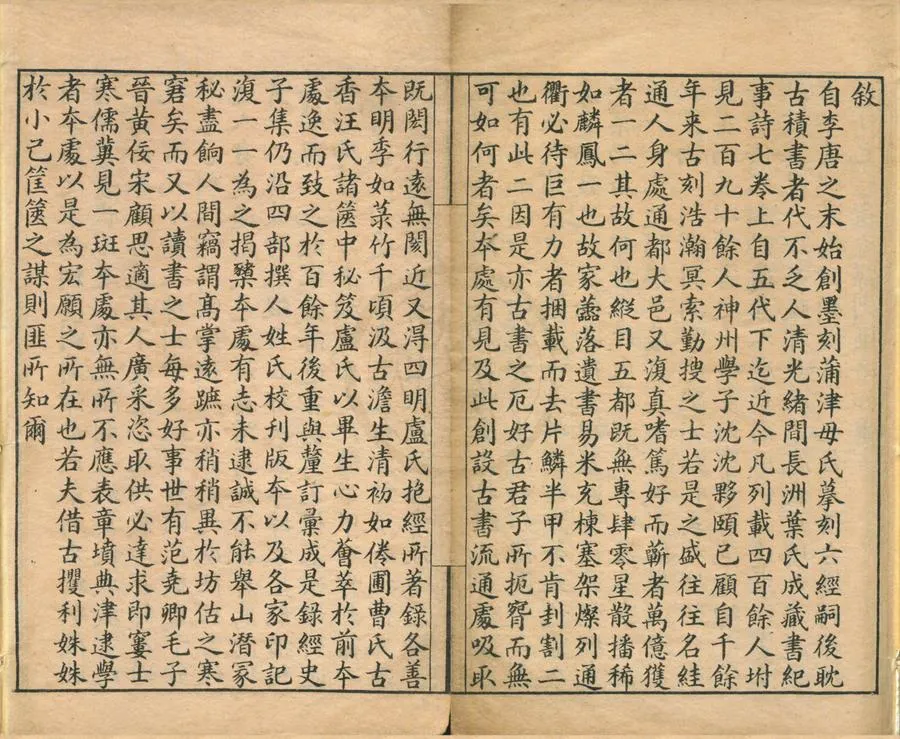 敘
自李唐之末始創墨刻蒲津毋氏摹刻六經嗣後耽
古積書者代不乏人清光緒間長洲葉氏成藏書紀
事詩七卷上自五代下迄近今凡列載四百餘人坿
見二百九十餘人神州學子沈沈夥頤已顧自千餘
年来古刻浩瀚冥索勤搜之士若是之盛往往名絓
通人身處通都大邑又復真嗜篤好而蘄者萬億獲
者一二其故何也縱目五都既無專肆零星散播稀
如麟鳳一也故家蠹落遺書易米充棟塞架燦列通
衢必待巨有力者捆載而去片鱗半甲不肯刲割二
也有此二因是亦古書之厄好古君子所扼腕而無
可如何者矣本處有見及此創設古書流通處吸取
既閎行遠無閡近又得四明盧氏抱經所著錄各善
本明季如菉竹千頃汲古澹生清初如倦圃曹氏古
香汪氏諸篋中秘笈盧氏以畢生心力薈萃於前本
處逸而致之於百餘年後重與釐訂彙成是録經史
子集仍沿四部撰人姓氏校刊版本以及各家印記
復一一為之揭櫫本處有志未逮誠不能舉山潛冢
秘盡餉人間竊謂高掌遠蹠亦稍稍異於坊估之寒
窘矣而又以讀書之士每多好事世有范堯卿毛子
晉黃佞宋顧思適其人廣采恣取供必達求即窶士
寒儒冀見一斑本處亦無所不應表章墳典津逮學
者本處以是為宏願之所在也若夫借古攫利姝姝
於小己筐篋之謀則匪所知爾